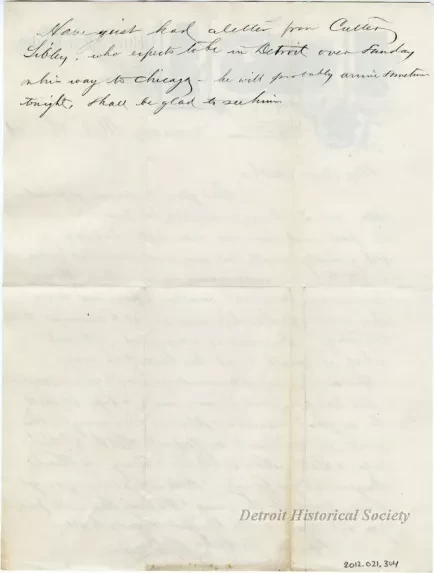 Have just had a letter from Cutter
Sibley, who expects to be in Detroit over Sunday
on his way to Chicago - he will probably arrive sometime
tonight, shall be glad to see him
Detroit Historical Society
2012.021.304